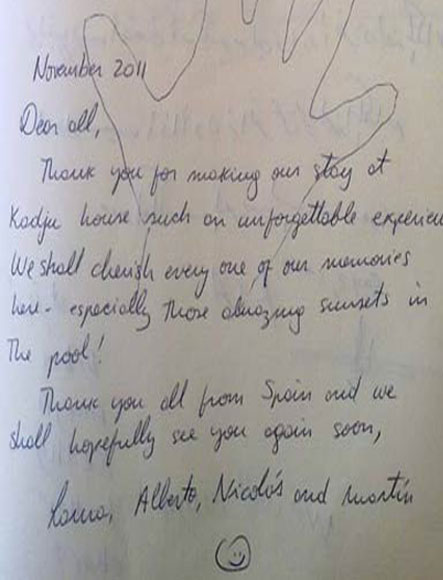 November 2011
Dear all,
Thank you for making our stay at
Kadju house such an unforgettable experience
We shall cherish every one of our memories
here - especially those amazing sunsets in
The pool!
Thank you all from Spain and we
shall hopefully see you again soon,
Alberto, Nicolás and Martín